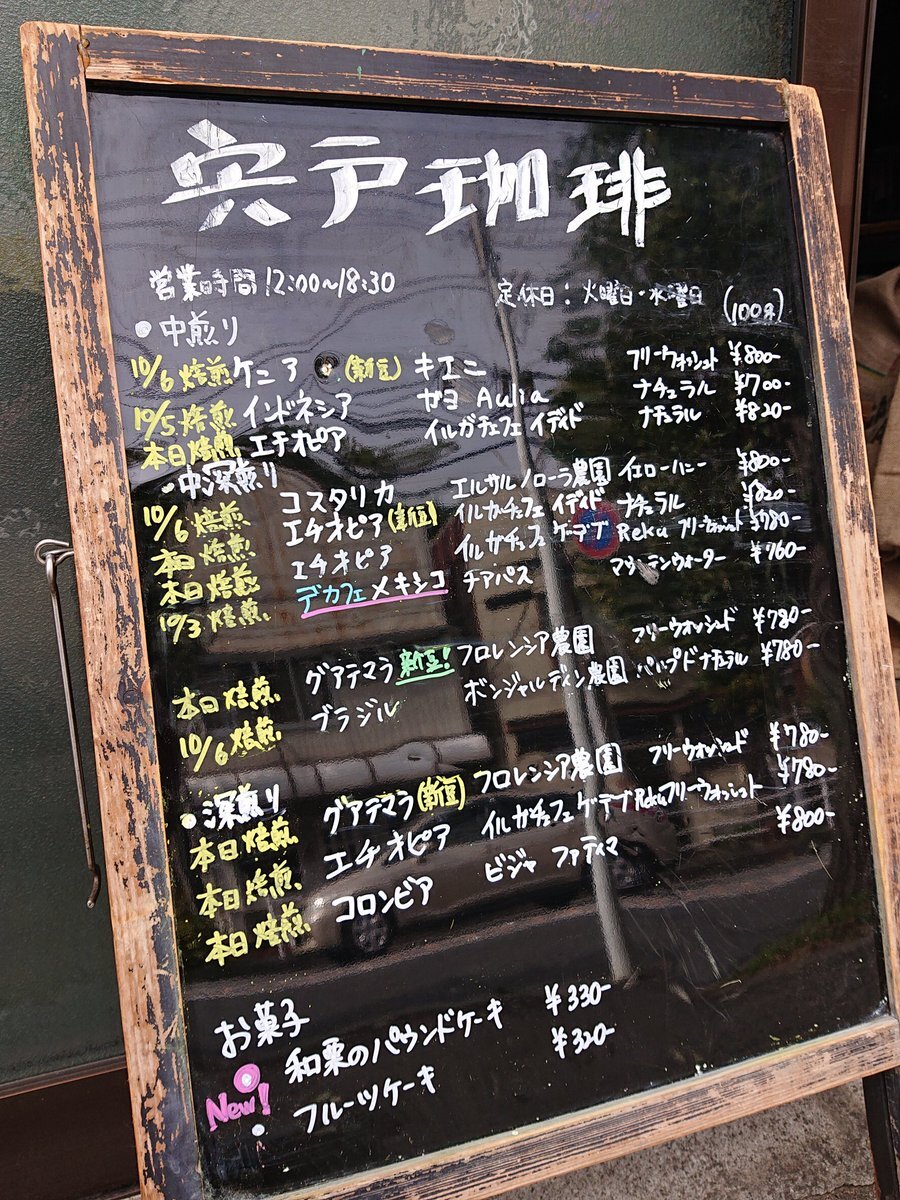 宍戸珈琲
営業時間 12:00~18:30 定休日：火曜日・水曜日 (100g)
・中煎り
10/6 焙煎 ケニア (新豆) キエニ フリーウォッシュト ¥800-
10/5 焙煎 インドネシア ガヨ Aulia ナチュラル ¥700-
本日焙煎 エチオピア イルガチェフェ イディド ナチュラル ¥820-
・中深煎り
10/6 焙煎 コスタリカ エルサル ノローラ農園 イエローハニー ¥800-
本日焙煎 エチオピア (新豆) イルガチェフェ イディド ナチュラル ¥820-
本日焙煎 エチオピア イルガチェフェ ゲーデブ Reku フリーウォッシュト ¥780-
10/3 焙煎 デカフェ メキシコ チアパス マウンテンウォーター ¥760-
本日焙煎 グアテマラ 新豆! フロレンシア農園 フリーウォッシュド ¥780-
10/6 焙煎 ブラジル ボンジャルディン農園 パルプドナチュラル ¥780-
・深煎り
本日焙煎 グアテマラ (新豆) フロレンシア農園 フリーウォンシュド ¥780-
本日焙煎 エチオピア イルガチェフェ ゲーデブ Reku フリーウォッシュト ¥780-
本日焙煎 コロンビア ビジャ ファティマ ¥800-
お菓子
New! 和栗のパウンドケーキ ¥330-
・フルーツケーキ ¥320-